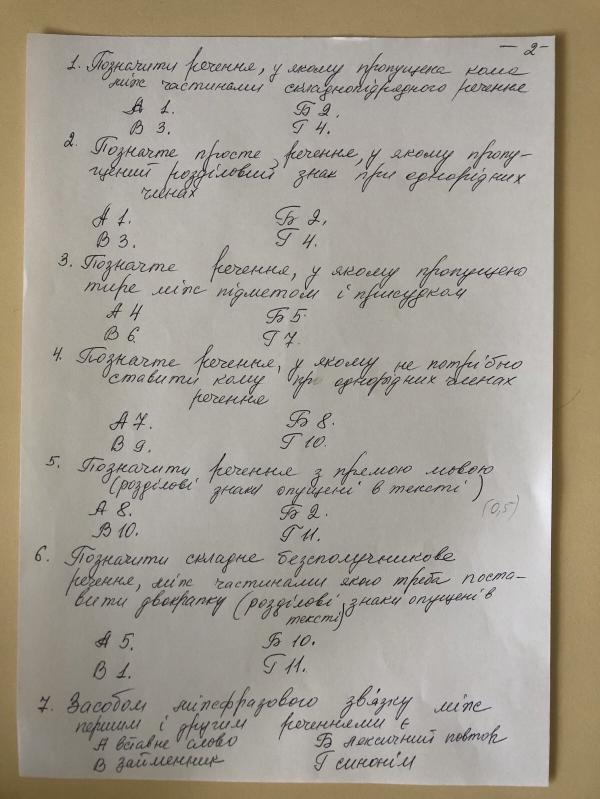 - 2 -
1. Позначити речення, у якому пропущена кома
між частинами складнопідрядного речення
А 1. Б 2.
В 3. Г 4.
2. Позначте просте речення, у якому пропу-
щений розділовий знак при однорідних
членах
А 1. Б 2.
В 3. Г 4.
3. Позначте речення, у якому пропущено
тире між підметом і присудком
А 4 Б 5.
В 6. Г 7.
4. Позначте речення, у якому не потрібно
ставити кому при однорідних членах
речення
А 7. Б 8.
В 9. Г 10.
5. Позначити речення з прямою мовою
(розділові знаки опущені в тексті)
А 8. Б 2. (0,5)
В 10. Г 11.
6. Позначити складне безсполучникове
речення, між частинами якого треба поста-
вити двокрапку (розділові знаки опущені в
тексті)
А 5. Б 10.
В 1. Г 11.
7. Засобом міжфразового зв'язку між
першим і другим реченнями є
А вставне слово Б лексичний повтор
В займенник Г синонім